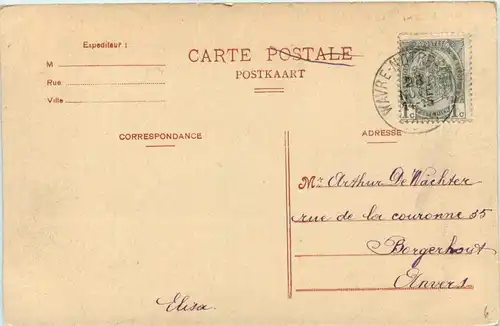 Expediteur :
M
Rue
Ville
CARTE POSTALE
POSTKAART
1c 1c
CORRESPONDANCE
ADRESSE
Mr Arthur De Wachter
rue de la couronne 55
Borgerhout
Anvers
Elisa
6